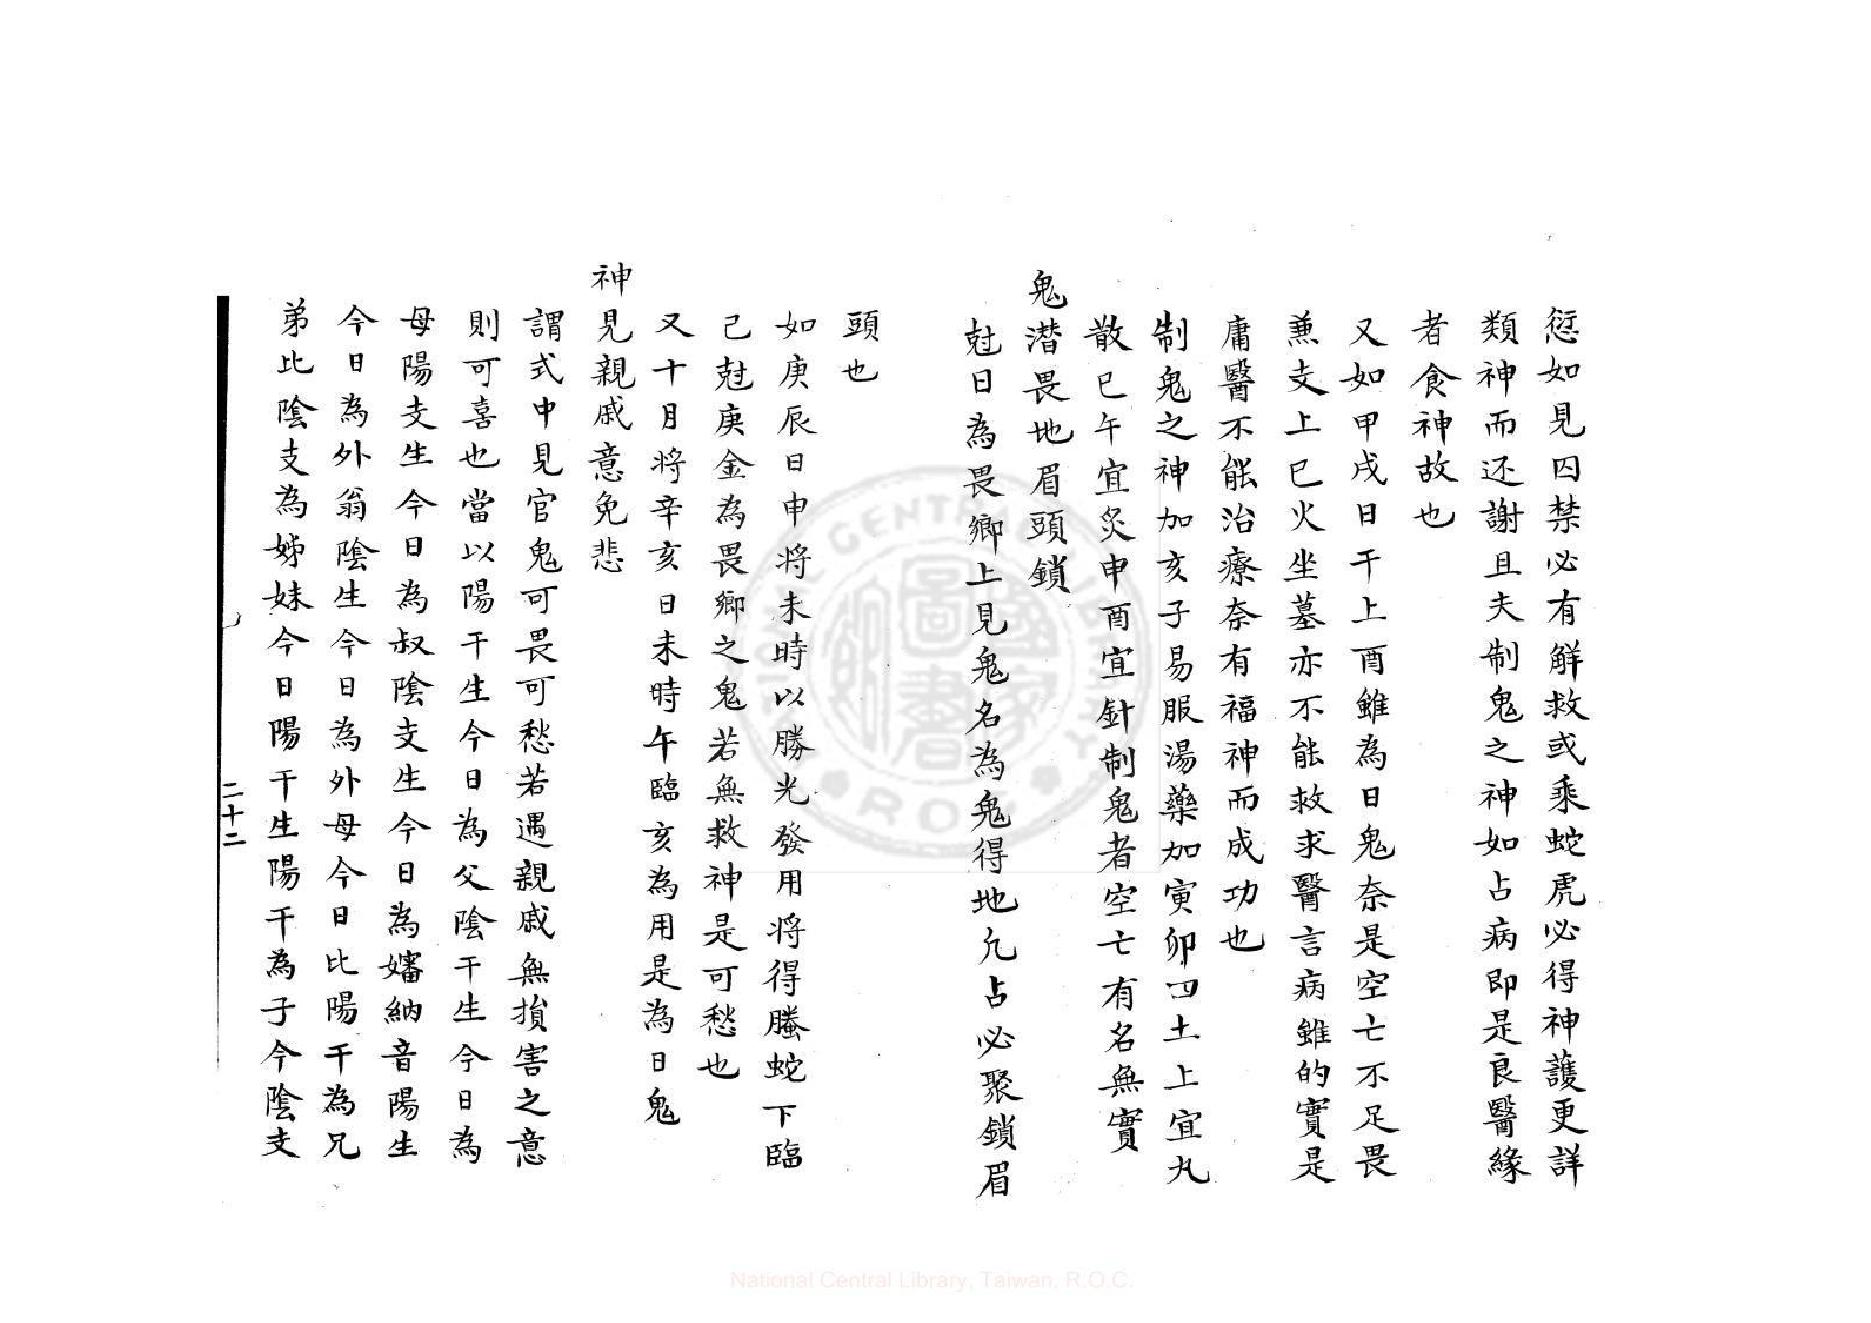 愆如見囚禁必有解救或乘蛇虎必得神護更詳
類神而还謝且夫制鬼之神如占病即是良醫緣
者食神故也
又如甲戌日干上酉雖為日鬼奈是空亡不足畏
兼支上巳火坐墓亦不能救求醫言病雖的實是
庸醫不能治療奈有福神而成功也
制鬼之神加亥子易服湯藥加寅卯四土上宜丸
散巳午宜炙申酉宜針制鬼者空亡有名無實
鬼潛畏地眉頭鎖
尅日為畏鄉上見鬼名為鬼得地凢占必聚鎖眉
頭也
如庚辰日申将未時以勝光發用将得螣蛇下臨
己尅庚金為畏鄉之鬼若無救神是可愁也
又十月将辛亥日未時午臨亥為用是為日鬼
神見親戚意免悲
謂式中見官鬼可畏可愁若遇親戚無損害之意
則可喜也當以陽干生今日為父陰干生今日為
母陽支生今日為叔陰支生今日為嬸納音陽生
今日為外翁陰生今日為外母今日比陽干為兄
弟比陰支為姊妹今日陽干生陽干為子今陰支
二十二
National Central Library, Taiwan, R.O.C.
NATIONAL CENTRAL LIBRARY
R.O.C.
國家圖書館